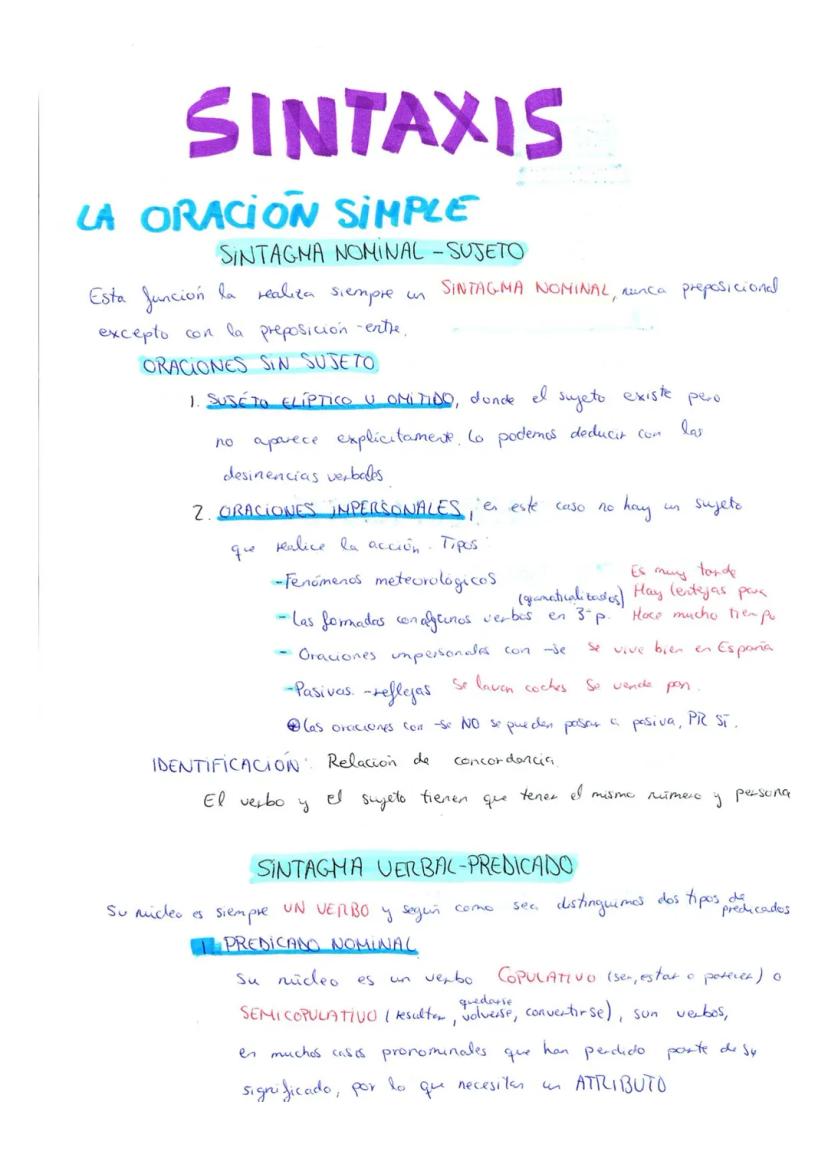 SINTAXIS
LA ORACIÓN SIMPLE
SINTAGMA NOMINAL - SUJETO
Esta función la realiza siempre un SINTAGMA NOMINAL, nunca preposicional
excepto con la preposición -entre.
ORACIONES SIN SUJETO
1. SUJETO ELÍPTICO U OMITIDO, donde el sujeto existe pero
no aparece explícitamente. Lo podemos deducir con las
desinencias verbales
2. ORACIONES IMPERSONALES, en este caso no hay un sujeto
que realice la acción. Tipos:
- Fenómenos meteorológicos
Es muy tarde
(gramaticalizados) Hay lentejas para
- Las formadas con algunos verbos en 3ª p. Hace mucho tiempo
- Oraciones impersonales con -se Se vive bien en España
- Pasivas -reflejas Se lavan coches Se vende pan.
⊕ Las oraciones con -se NO se pueden pasar a pasiva, PR SÍ.
IDENTIFICACIÓN: Relación de concordancia.
El verbo y el sujeto tienen que tener el mismo número y persona
SINTAGMA VERBAL-PREDICADO
Su núcleo es siempre UN VERBO y según como sea distinguimos dos tipos de predicados
1. PREDICADO NOMINAL
Su núcleo es un verbo COPULATIVO (ser, estar o parecer) o
quedarse
SEMICOPULATIVO (resultar, volverse, convertirse), son verbos,
en muchos casos pronominales que han perdido parte de su
significado, por lo que necesitan un ATRIBUTO